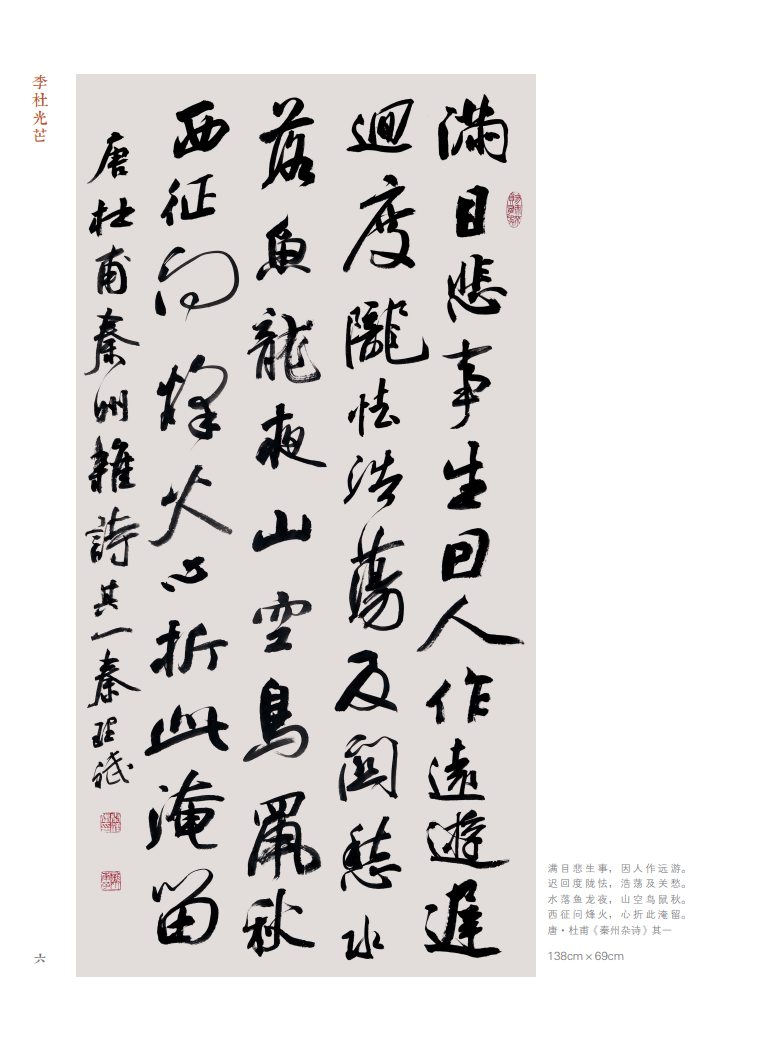 李杜光芒
滿目悲事生因人作遠遊遲
迴度隴怯浩蕩及關愁水
落魚龍夜山空鳥鼠秋
西征問烽火心折此淹留
唐杜甫秦州雜詩其一秦理
满目悲生事，因人作远游。
迟回度陇怯，浩荡及关愁。
水落鱼龙夜，山空鸟鼠秋。
西征问烽火，心折此淹留。
唐·杜甫《秦州杂诗》其一
138cm×69cm
六